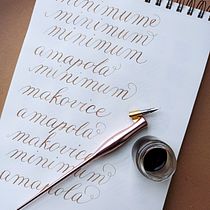 minimum
minimum
minimum
amapola
minimum
makovice
amapola
makovice
minimum
amapola